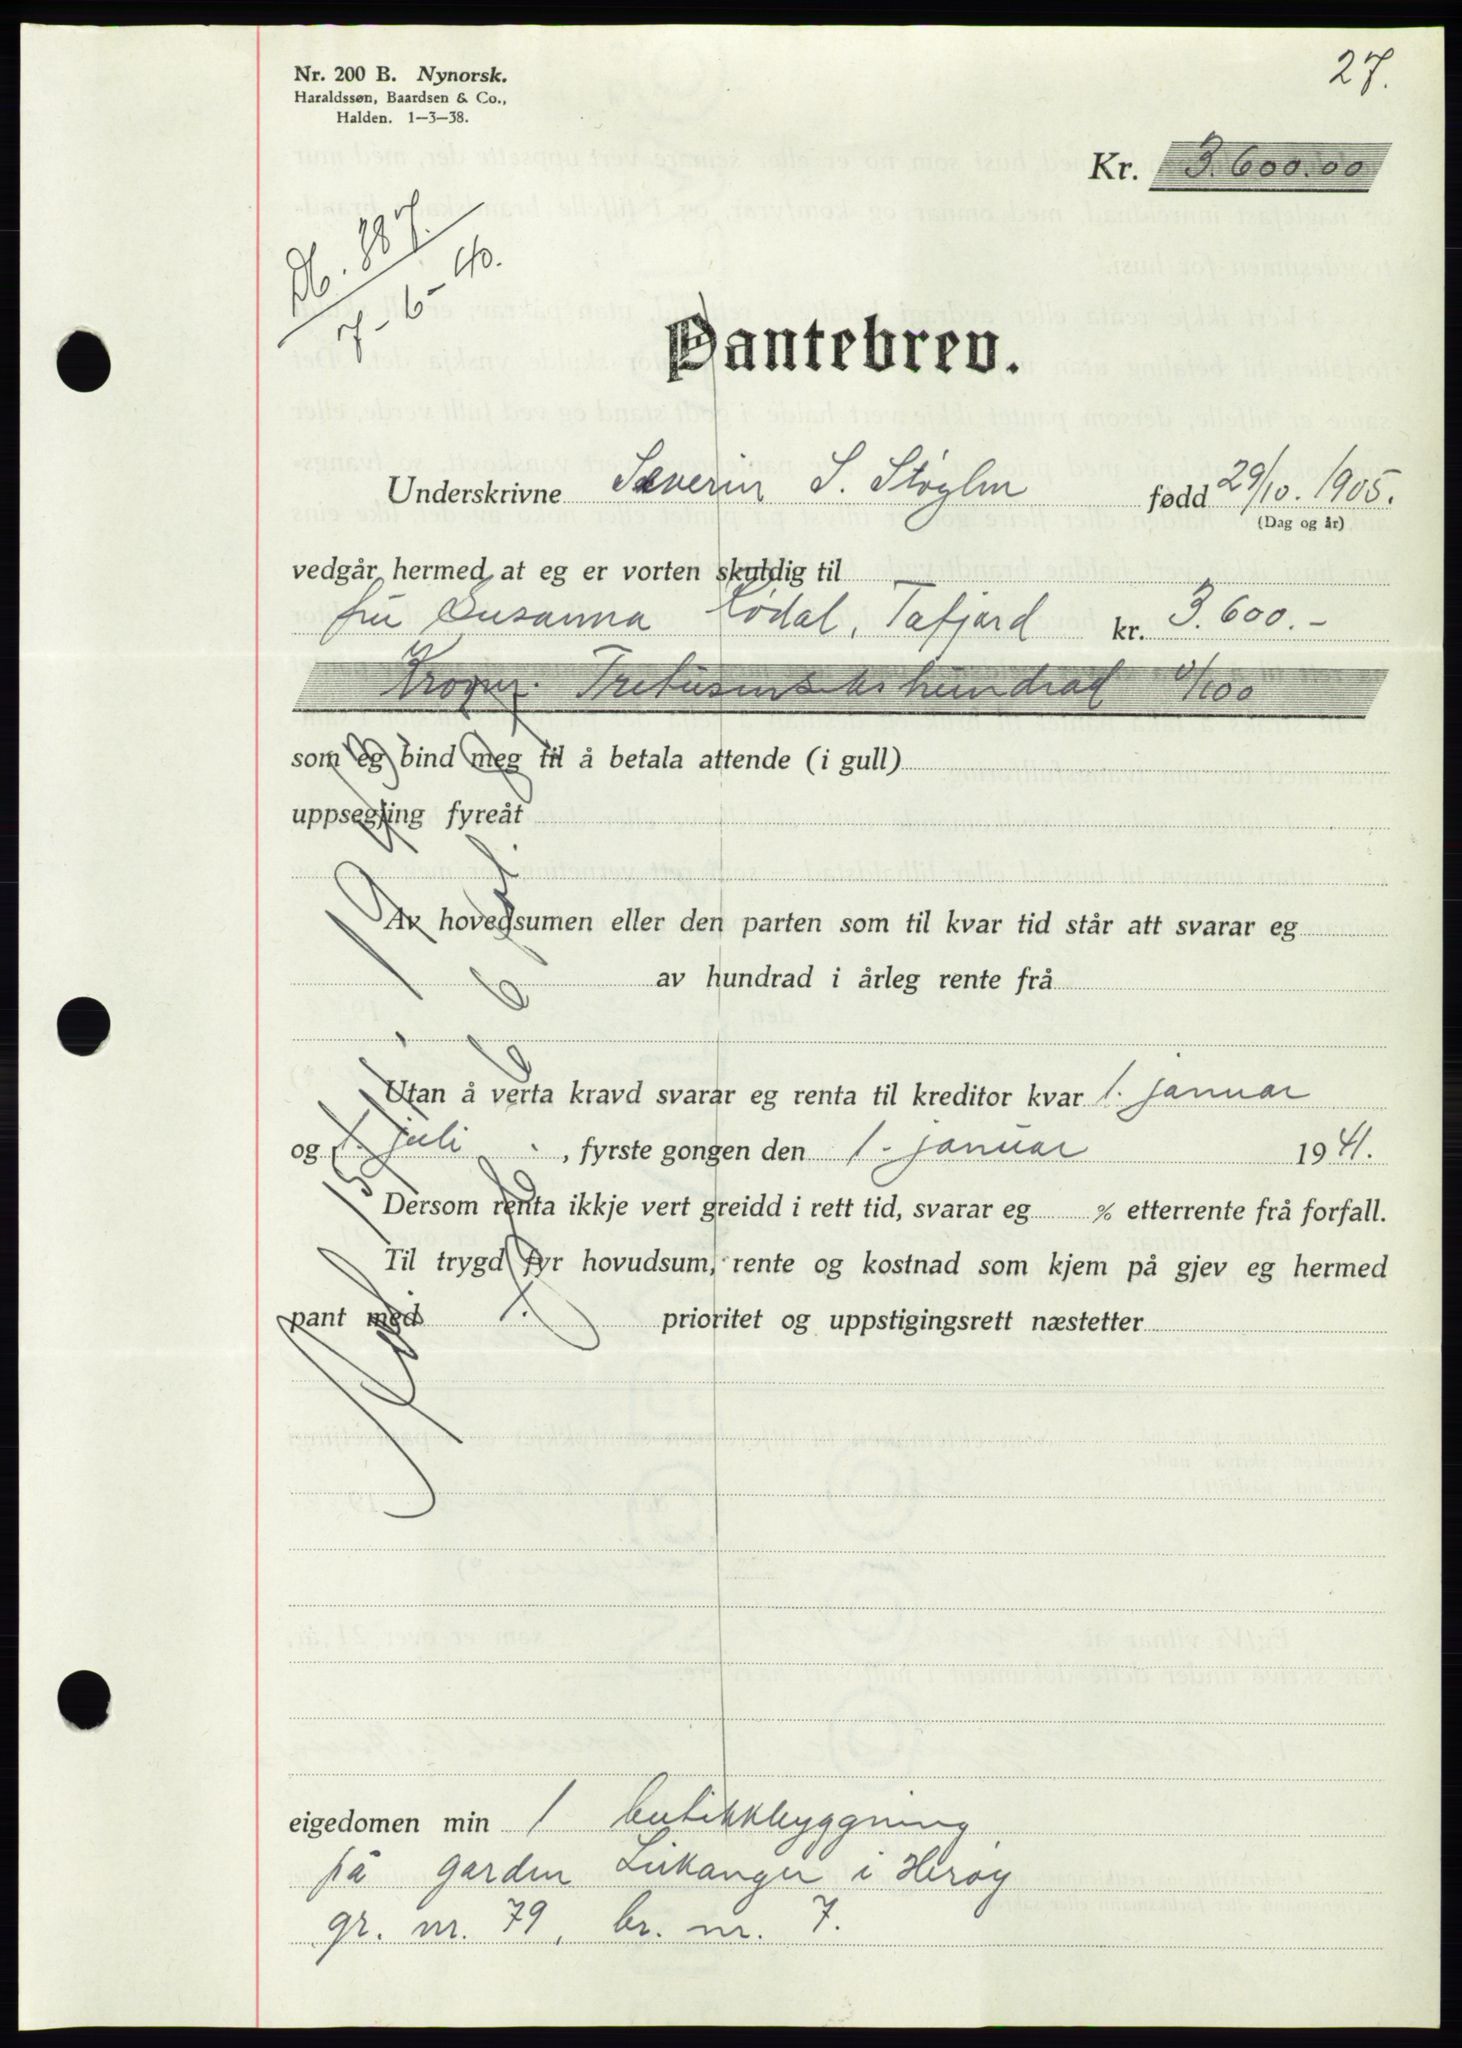 27.
Nr. 200 B. Nynorsk.
Haraldssøn, Baardsen & Co.,
Halden. 1–3–38.
Kr. 3.600.00
Db. 887.
7-6-40.
Pantebrev.
Underskrivne Severin S. Støylen fødd 29/10. 1905.
(Dag og år)
vedgår hermed at eg er vorten skuldig til
fru Susanna Kødal, Tafjord kr. 3.600.-
Kroner. Tretusensekshundrad 0/100
som eg bind meg til å betala attende (i gull)
uppsegjing fyreåt
Av hovedsumen eller den parten som til kvar tid står att svarar eg
av hundrad i årleg rente frå
Utan å verta kravd svarar eg renta til kreditor kvar 1. januar
og 1. juli , fyrste gongen den 1. januar 1941.
Dersom renta ikkje vert greidd i rett tid, svarar eg % etterrente frå forfall.
Til trygd fyr hovudsum, rente og kostnad som kjem på gjev eg hermed
pant med 1. prioritet og uppstigingsrett næstetter
eigedomen min 1 butikkbyggning
på garden Leikanger i Herøy
gr. nr. 79, br. nr. 7.